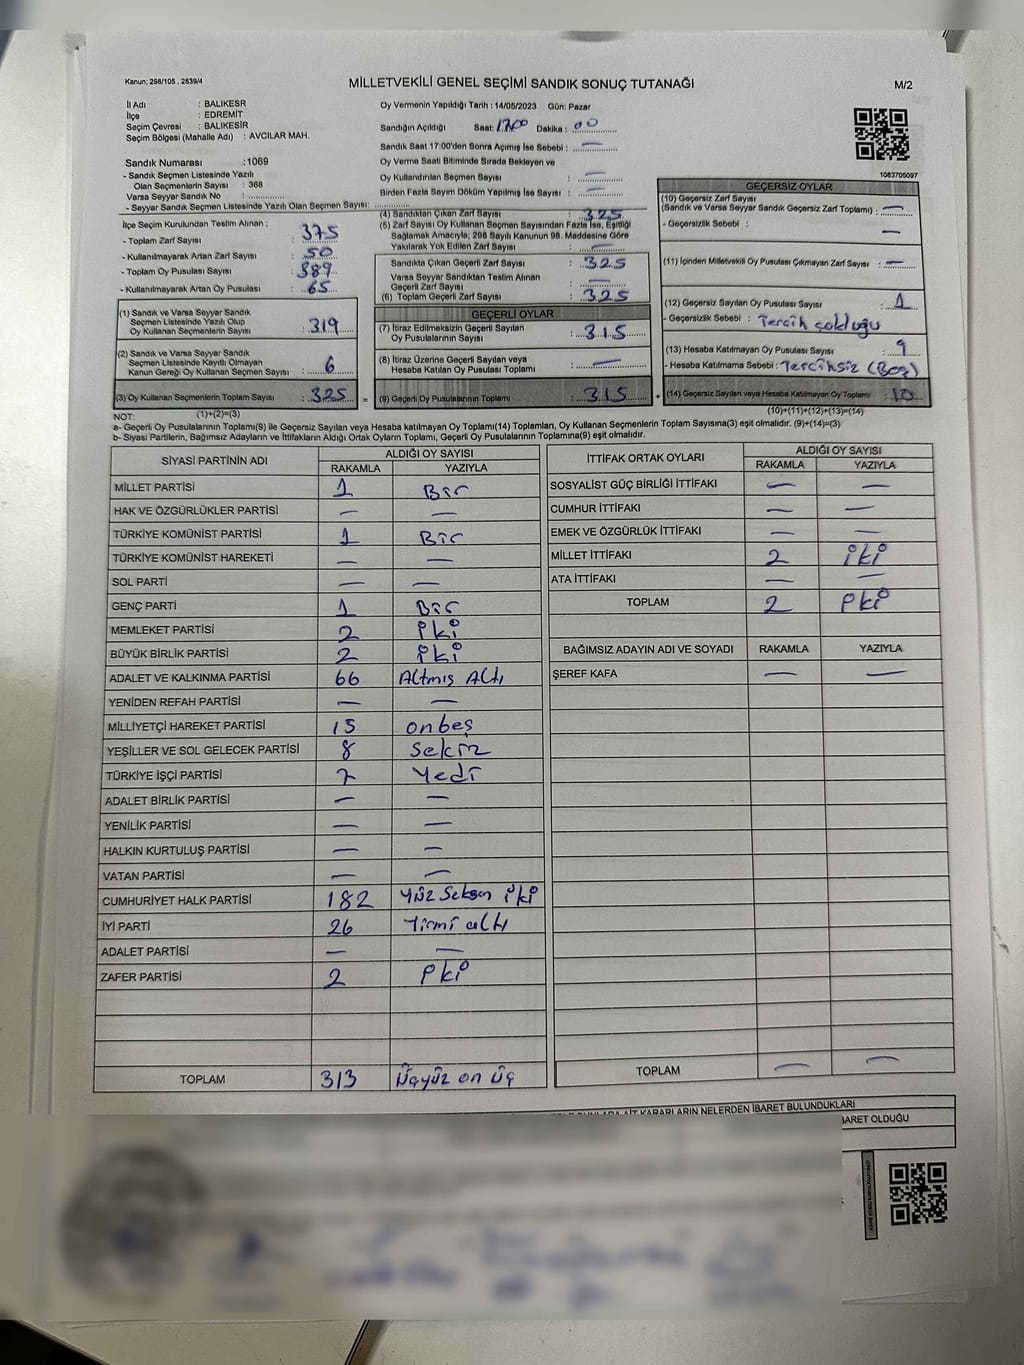 Kanun; 298/105 , 2839/4
MİLLETVEKİLİ GENEL SEÇİMİ SANDIK SONUÇ TUTANAĞI
M/2
İl Adı : BALIKESR
İlçe : EDREMİT
Seçim Çevresi : BALIKESİR
Seçim Bölgesi (Mahalle Adı) : AVCILAR MAH.
Sandık Numarası :1069
- Sandık Seçmen Listesinde Yazılı
Olan Seçmenlerin Sayısı : 368
Varsa Seyyar Sandık No :
- Seyyar Sandık Seçmen Listesinde Yazılı Olan Seçmen Sayısı:
Oy Vermenin Yapıldığı Tarih : 14/05/2023 Gün: Pazar
Sandığın Açıldığı Saat: 1700 Dakika : 00
Sandık Saat 17:00'den Sonra Açımış İse Sebebi : —
Oy Verme Saati Bitiminde Sırada Bekleyen ve
Oy Kullandırılan Seçmen Sayısı : —
Birden Fazla Sayım Döküm Yapılmış İse Sayısı : —
1083705097
İlçe Seçim Kurulundan Teslim Alınan ;
- Toplam Zarf Sayısı : 375
- Kullanılmayarak Artan Zarf Sayısı : 50
- Toplam Oy Pusulası Sayısı : 389
- Kullanılmayarak Artan Oy Pusulası : 65
(1) Sandık ve Varsa Seyyar Sandık
Seçmen Listesinde Yazılı Olup
Oy Kullanan Seçmenlerin Sayısı : 319
(2) Sandık ve Varsa Seyyar Sandık
Seçmen Listesinde Kayıtlı Olmayan
Kanun Gereği Oy Kullanan Seçmen Sayısı : 6
(3) Oy Kullanan Seçmenlerin Toplam Sayısı : 325 =
(4) Sandıktan Çıkan Zarf Sayısı : 325
(5) Zarf Sayısı Oy Kullanan Seçmen Sayısından Fazla İse, Eşitliği
Sağlamak Amacıyla; 298 Sayılı Kanunun 98. Maddesine Göre
Yakılarak Yok Edilen Zarf Sayısı : —
Sandıkta Çıkan Geçerli Zarf Sayısı : 325
Varsa Seyyar Sandıktan Teslim Alınan
Geçerli Zarf Sayısı : —
(6) Toplam Geçerli Zarf Sayısı : 325
GEÇERLİ OYLAR
(7) İtiraz Edilmeksizin Geçerli Sayılan
Oy Pusulalarının Sayısı : 315
(8) İtiraz Üzerine Geçerli Sayılan veya
Hesaba Katılan Oy Pusulası Toplamı : —
(9) Geçerli Oy Pusulalarının Toplamı : 315 +
GEÇERSİZ OYLAR
(10) Geçersiz Zarf Sayısı
(Sandık ve Varsa Seyyar Sandık Geçersiz Zarf Toplamı) : —
- Geçersizlik Sebebi : —
(11) İçinden Milletvekili Oy Pusulası Çıkmayan Zarf Sayısı : —
(12) Geçersiz Sayılan Oy Pusulası Sayısı : 1
- Geçersizlik Sebebi : Tercih çokluğu
(13) Hesaba Katılmayan Oy Pusulası Sayısı : 9
- Hesaba Katılmama Sebebi : Tercihsiz (Boş)
(14) Geçersiz Sayılan veya Hesaba Katılmayan Oy Toplamı : 10
NOT: (1)+(2)=(3)
(10)+(11)+(12)+(13)=(14)
a- Geçerli Oy Pusulalarının Toplamı(9) ile Geçersiz Sayılan veya Hesaba katılmayan Oy Toplamı(14) Toplamları, Oy Kullanan Seçmenlerin Toplam Sayısına(3) eşit olmalıdır. (9)+(14)=(3)
b- Siyasi Partilerin, Bağımsız Adayların ve İttifakların Aldığı Ortak Oyların Toplamı, Geçerli Oy Pusulalarının Toplamına(9) eşit olmalıdır.
SİYASİ PARTİNİN ADI ALDIĞI OY SAYISI
RAKAMLA YAZIYLA
MİLLET PARTİSİ 1 Bir
HAK VE ÖZGÜRLÜKLER PARTİSİ — —
TÜRKİYE KOMÜNİST PARTİSİ 1 Bir
TÜRKİYE KOMÜNİST HAREKETİ — —
SOL PARTİ — —
GENÇ PARTİ 1 Bir
MEMLEKET PARTİSİ 2 iki
BÜYÜK BİRLİK PARTİSİ 2 iki
ADALET VE KALKINMA PARTİSİ 66 Altmış Altı
YENİDEN REFAH PARTİSİ — —
MİLLİYETÇİ HAREKET PARTİSİ 15 onbeş
YEŞİLLER VE SOL GELECEK PARTİSİ 8 Sekiz
TÜRKİYE İŞÇİ PARTİSİ 7 Yedi
ADALET BİRLİK PARTİSİ — —
YENİLİK PARTİSİ — —
HALKIN KURTULUŞ PARTİSİ — —
VATAN PARTİSİ — —
CUMHURİYET HALK PARTİSİ 182 Yüz Seksen iki
İYİ PARTİ 26 Yirmi altı
ADALET PARTİSİ — —
ZAFER PARTİSİ 2 iki
TOPLAM 313 Üçyüz on üç
İTTİFAK ORTAK OYLARI ALDIĞI OY SAYISI
RAKAMLA YAZIYLA
SOSYALİST GÜÇ BİRLİĞİ İTTİFAKI — —
CUMHUR İTTİFAKI — —
EMEK VE ÖZGÜRLÜK İTTİFAKI — —
MİLLET İTTİFAKI 2 iki
ATA İTTİFAKI — —
TOPLAM 2 iki
BAĞIMSIZ ADAYIN ADI VE SOYADI RAKAMLA YAZIYLA
ŞEREF KAFA — —
TOPLAM — —
AİT KARARLARIN NELERDEN İBARET BULUNDUKLARI
İBARET OLDUĞU